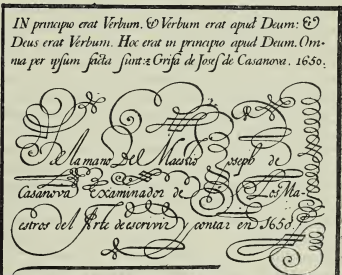 IN principio erat Verbum. & Verbum erat apud Deum: &
Deus erat Verbum. Hoc erat in principio apud Deum. Om-
nia per ipsum facta sunt: z Grifa de Josef de Casanova. 1650.
De la mano Del Maestro Joseph de
Casanova examinador de Los Ma-
estros del Arte de escrivir y contar en 1650.